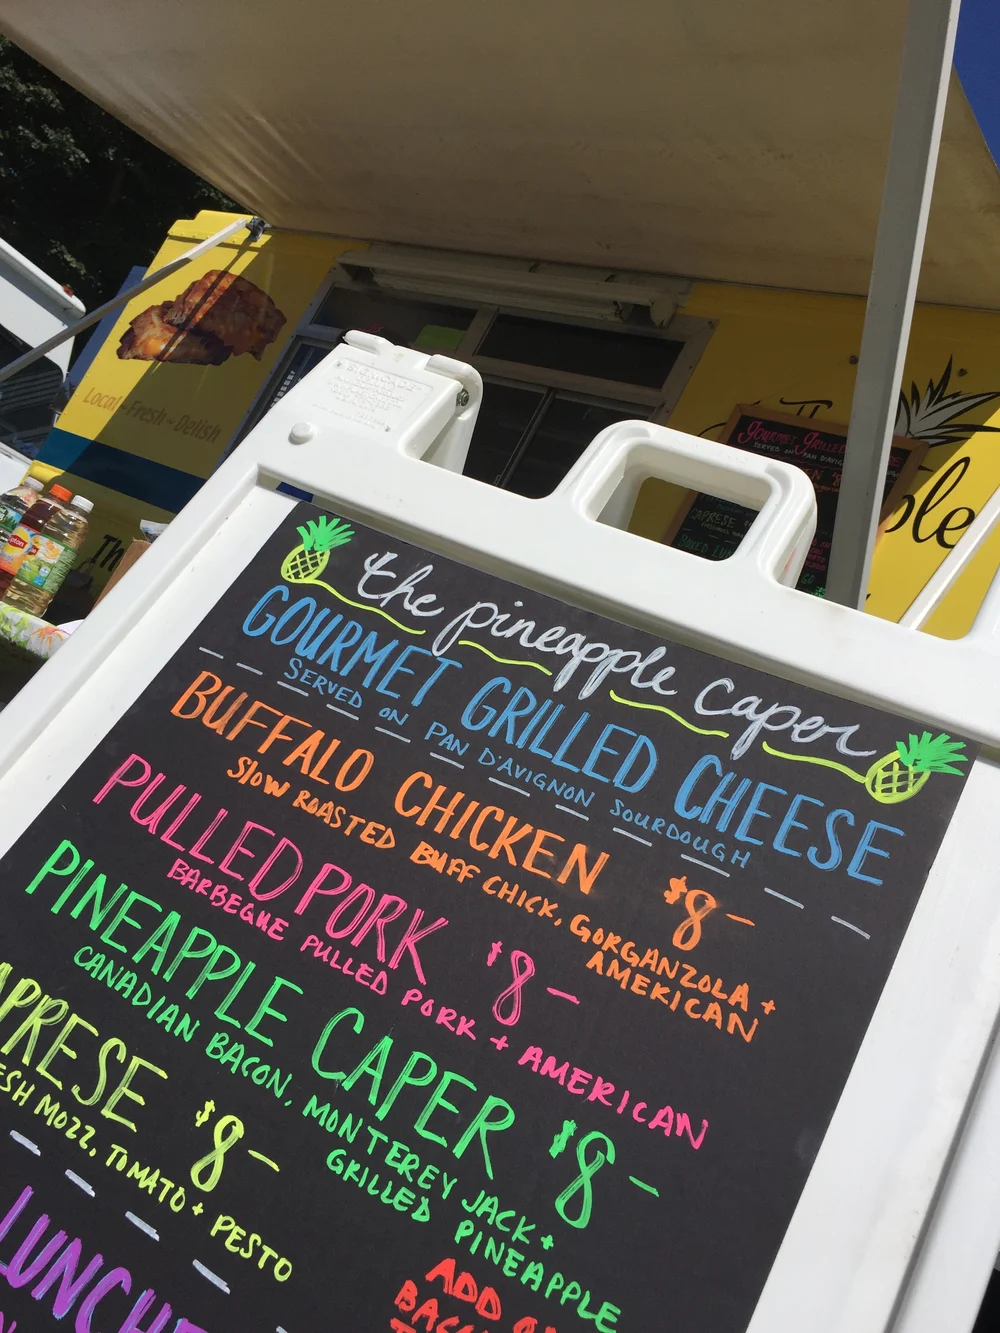 the pineapple caper
GOURMET GRILLED CHEESE
SERVED ON PAN D'AVIGNON SOURDOUGH
BUFFALO CHICKEN $8-
SLOW ROASTED BUFF CHICK, GORGANZOLA +
AMERICAN
PULLED PORK $8-
BARBEQUE PULLED PORK + AMERICAN
PINEAPPLE CAPER $8-
CANADIAN BACON, MONTEREY JACK +
GRILLED PINEAPPLE
APRESE $8-
ESH MOZZ, TOMATO + PESTO
LUNCH
ADD
Local - Fresh - Delish
The
GOURMET GRILLED
SERVED ON PAN D'AVIG
CAPRESE